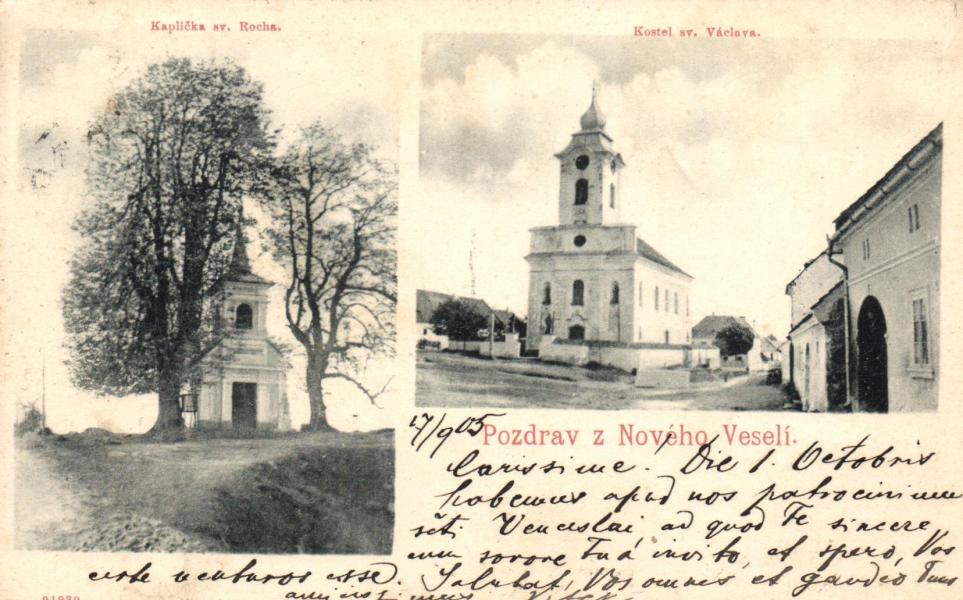 Kaplička sv. Rocha.
Kostel sv. Václava.
17/9 05
Pozdrav z Nového Veselí.
Carissime! Die 1. Octobris
habemus apud nos patrocinium
scti Venceslai, ad quod Te sincere,
cum sorore Tua invito, et spero, Vos
certe venturos esse. Salutat Vos omnes et gaudio Tuus